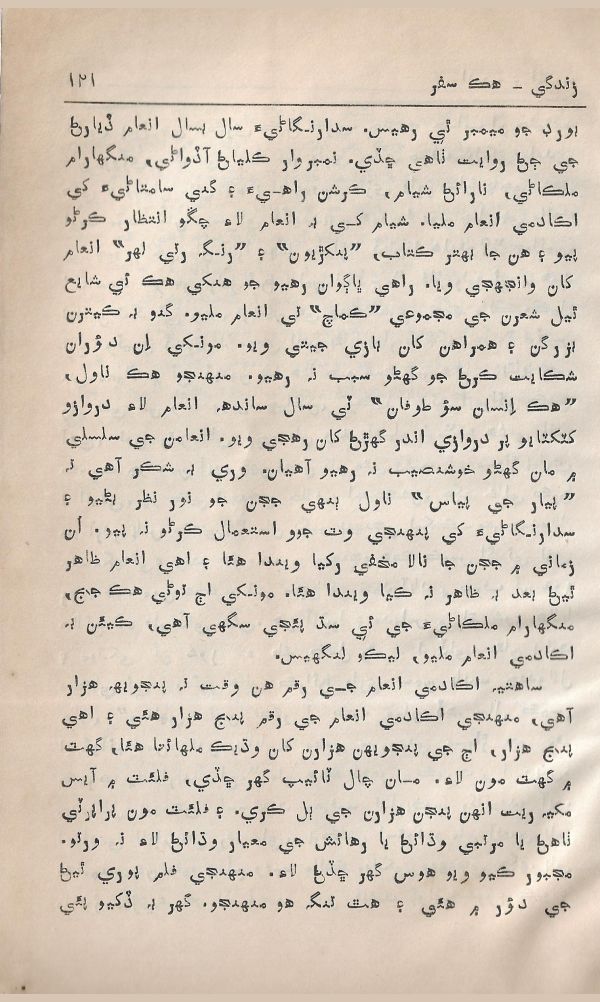 زندگي - هڪ سفر ۱۲۱
بورڊ جو ميمبر ٿي رهيس. سدارنگاڻيءَ سال بسال انعام ڏيارڻ
جي ڄڻ روايت ٺاهي ڇڏي. نمبروار ڪلياڻ آڏواڻي، منگهارام
ملڪاڻي، نارائڻ شيام، ڪرشن راهيءَ ۽ گني سامتاڻيءَ کي
اڪادمي انعام مليا. شيام کي بہ انعام لاءِ چڱو انتظار ڪرڻو
پيو ۽ هن جا بهتر ڪتاب، ”پنکڙيون“ ۽ ”رنگ رتي لهر“ انعام
کان وانجهجي ويا. راهي ڀاڳوان رهيو جو هنکي هڪ ئي شايع
ٿيل شعرن جي مجموعي ”ڪماچ“ تي انعام مليو. گنو بہ ڪيترن
بزرگن ۽ همراهن کان بازي جيتي ويو. مونکي اِن دؤران
شڪايت ڪرڻ جو گهڻو سبب نہ رهيو. منهنجو هڪ ناول،
”هڪ اِنسان سؤ طوفان“ ٽي سال ساندهہ انعام لاءِ دروازو
کٽکٽايو پر دروازي اندر گهڙڻ کان رهجي ويو. انعامن جي سلسلي
۾ مان گهڻو خوشنصيب نہ رهيو آهيان. وري بہ شڪر آهي تہ
”پيار جي پياس“ ناول ٻنهي ججن جو نور نظر بڻيو ۽
سدارنگاڻيءَ کي پنهنجي وٽ جوو استعمال ڪرڻو نہ پيو. اُن
زماني ۾ ججن جا نالا مخفي رکيا ويندا هئا ۽ اهي انعام ظاهر
ٿيڻ بعد بہ ظاهر نہ ڪيا ويندا هئا. مونکي اڄ ٿوڻي هڪ جج،
منگهارام ملڪاڻيءَ جي ئي سڌ پئجي سگهي آهي، ڪيئن بہ
اڪادمي انعام مليو، ليڪو لنگهيس.
ساهتيہ اڪادمي انعام جي رقم هن وقت تہ پنجويهہ هزار
آهي، منهنجي اڪادمي انعام جي رقم پنج هزار هئي ۽ اهي
پنج هزار، اڄ جي پنجويهن هزارن کان وڌيڪ ملهائتا هئا، گهٽ
۾ گهٽ مون لاءِ. مان چال ٽائيپ گهر ڇڏي، فلئٽ ۾ آيس
مکيہ ريت انهن پنجن هزارن جي ٻل ڪري. ۽ فلئٽ مون پراپرٽي
ٺاهڻ يا مرتبي وڌائڻ يا رهائش جي معيار وڌائڻ لاءِ نہ ورتو.
مجبور ڪيو ويو هوس گهر ڇڏڻ لاءِ. منهنجي فلم پوري ٿيڻ
جي دؤر ۾ هئي ۽ هٿ تنگ هو منهنجو. گهر بہ ڏکيو پئي